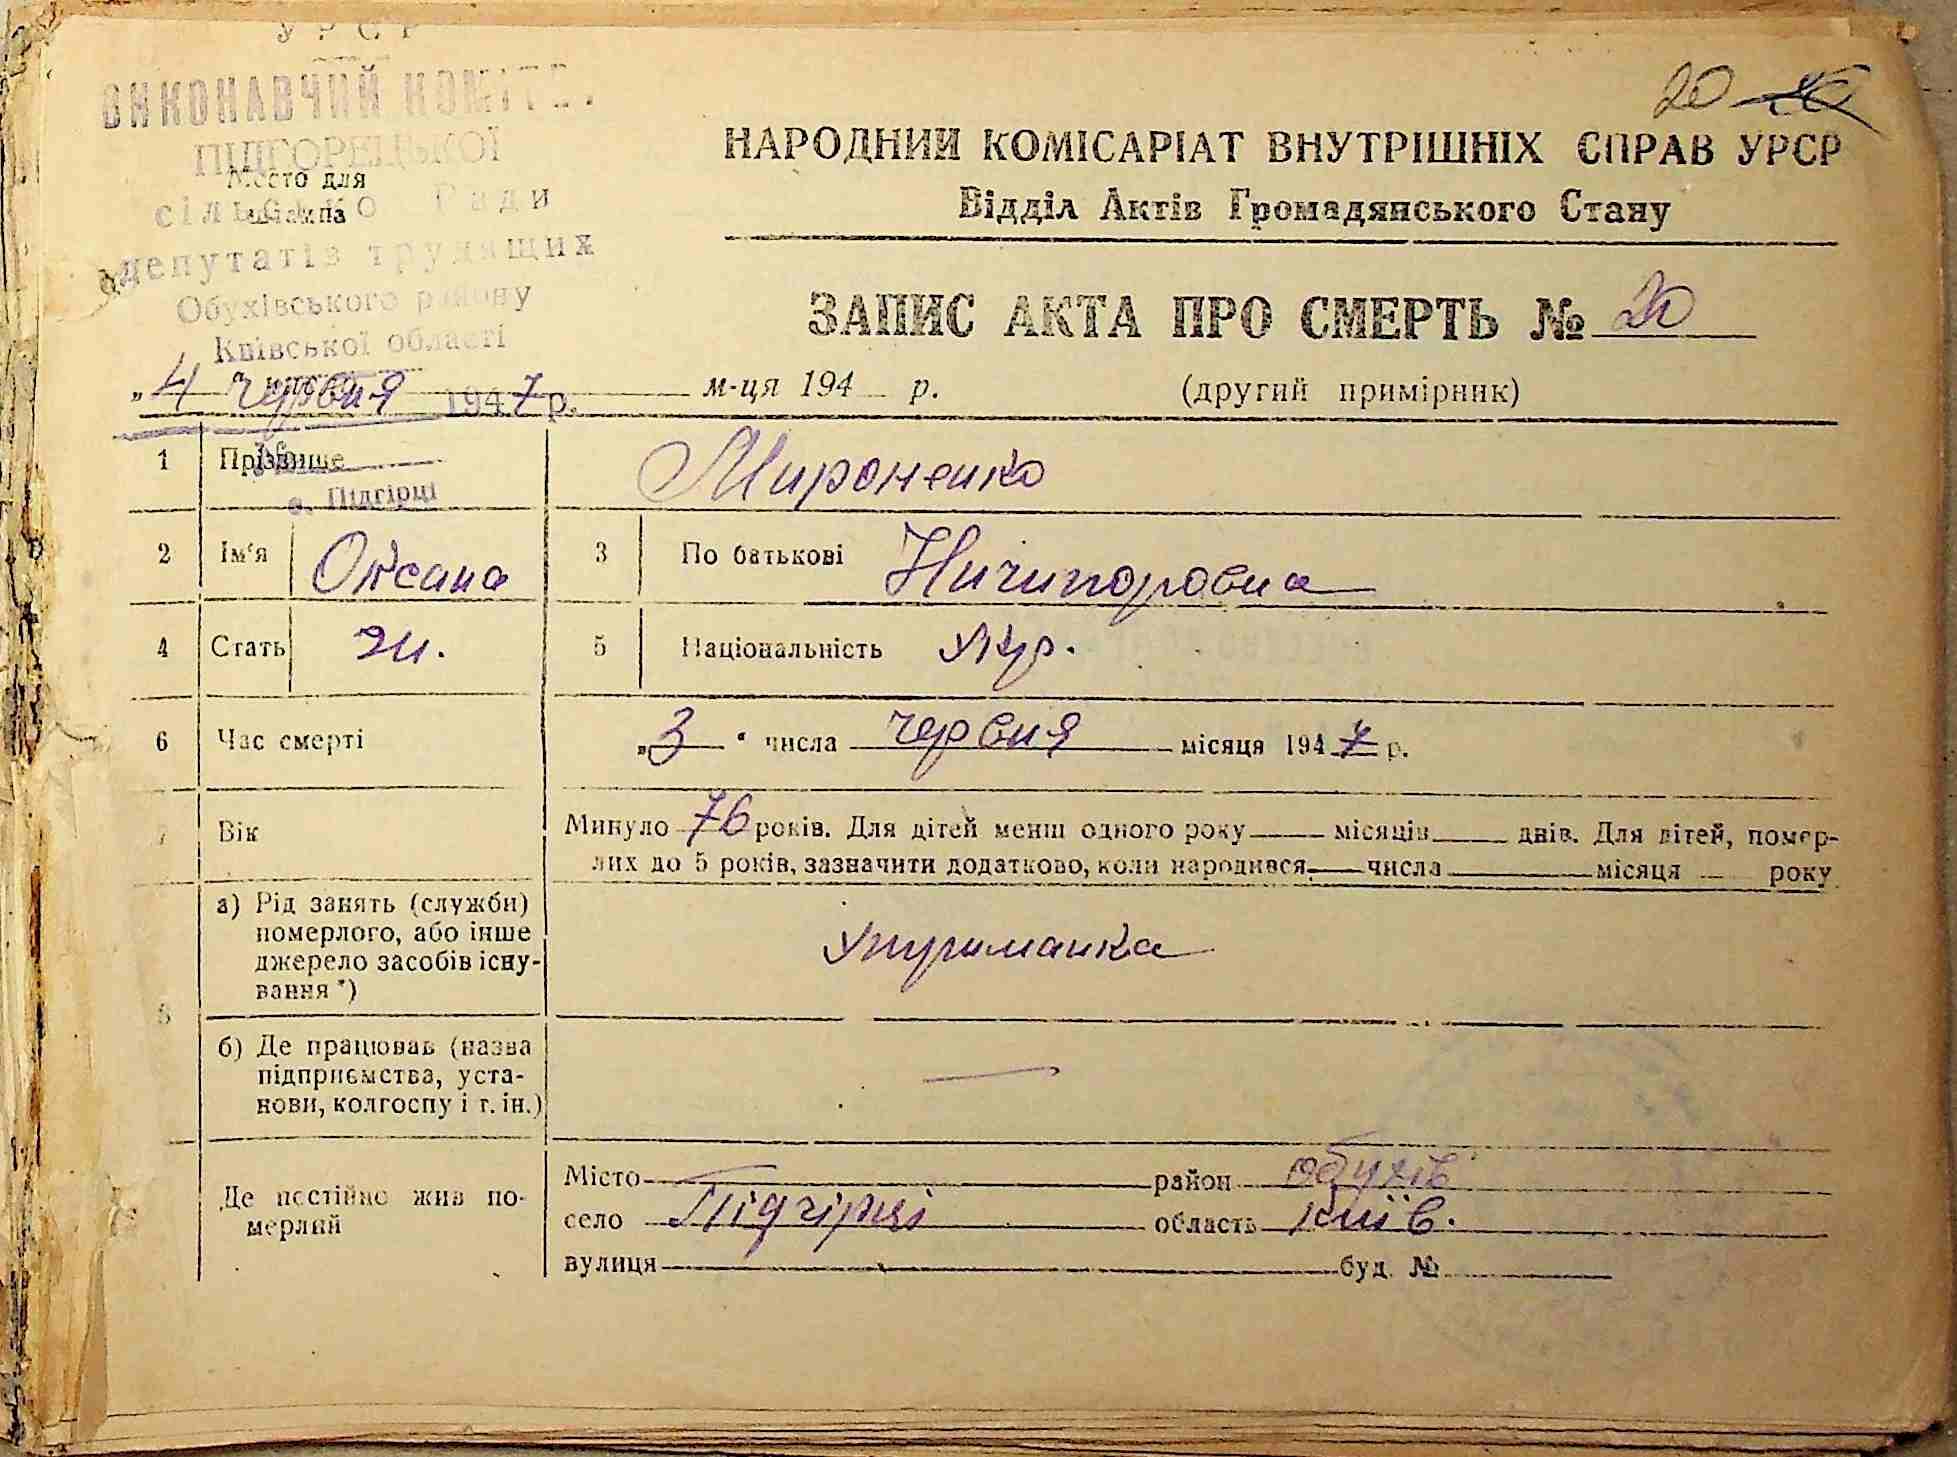 УРСР
ВИКОНАВЧИЙ КОМІТЕТ
ПІДГОРЕЦЬКОЇ
Место для
штампа
сільсько Ради
депутатів трудящих
Обухівського району
Київської області
20
НАРОДНИЙ КОМІСАРІАТ ВНУТРІШНІХ СПРАВ УРСР
Відділ Актів Громадянського Стану
ЗАПИС АКТА ПРО СМЕРТЬ № 20
„4 червня 1947 р. м-ця 194 р. (другий примірник)
1 Прізвище Мироненко
с. Підгірці
2 Ім'я Оксана 3 По батькові Ничипоровна
4 Стать ж. 5 Національність Укр.
6 Час смерті „3“ числа червня місяця 1947 р.
7 Вік Минуло 76 років. Для дітей менш одного року місяців днів. Для дітей, помер-
лих до 5 років, зазначити додатково, коли народився числа місяця року
а) Рід занять (служби)
померлого, або інше
джерело засобів існу-
вання *)
Утриманка
б) Де працював (назва
підприємства, уста-
нови, колгоспу і т. ін.)
—
Де постійно жив по-
мерлий
Місто район Обухів
село Підгірці область Київ.
вулиця буд. №